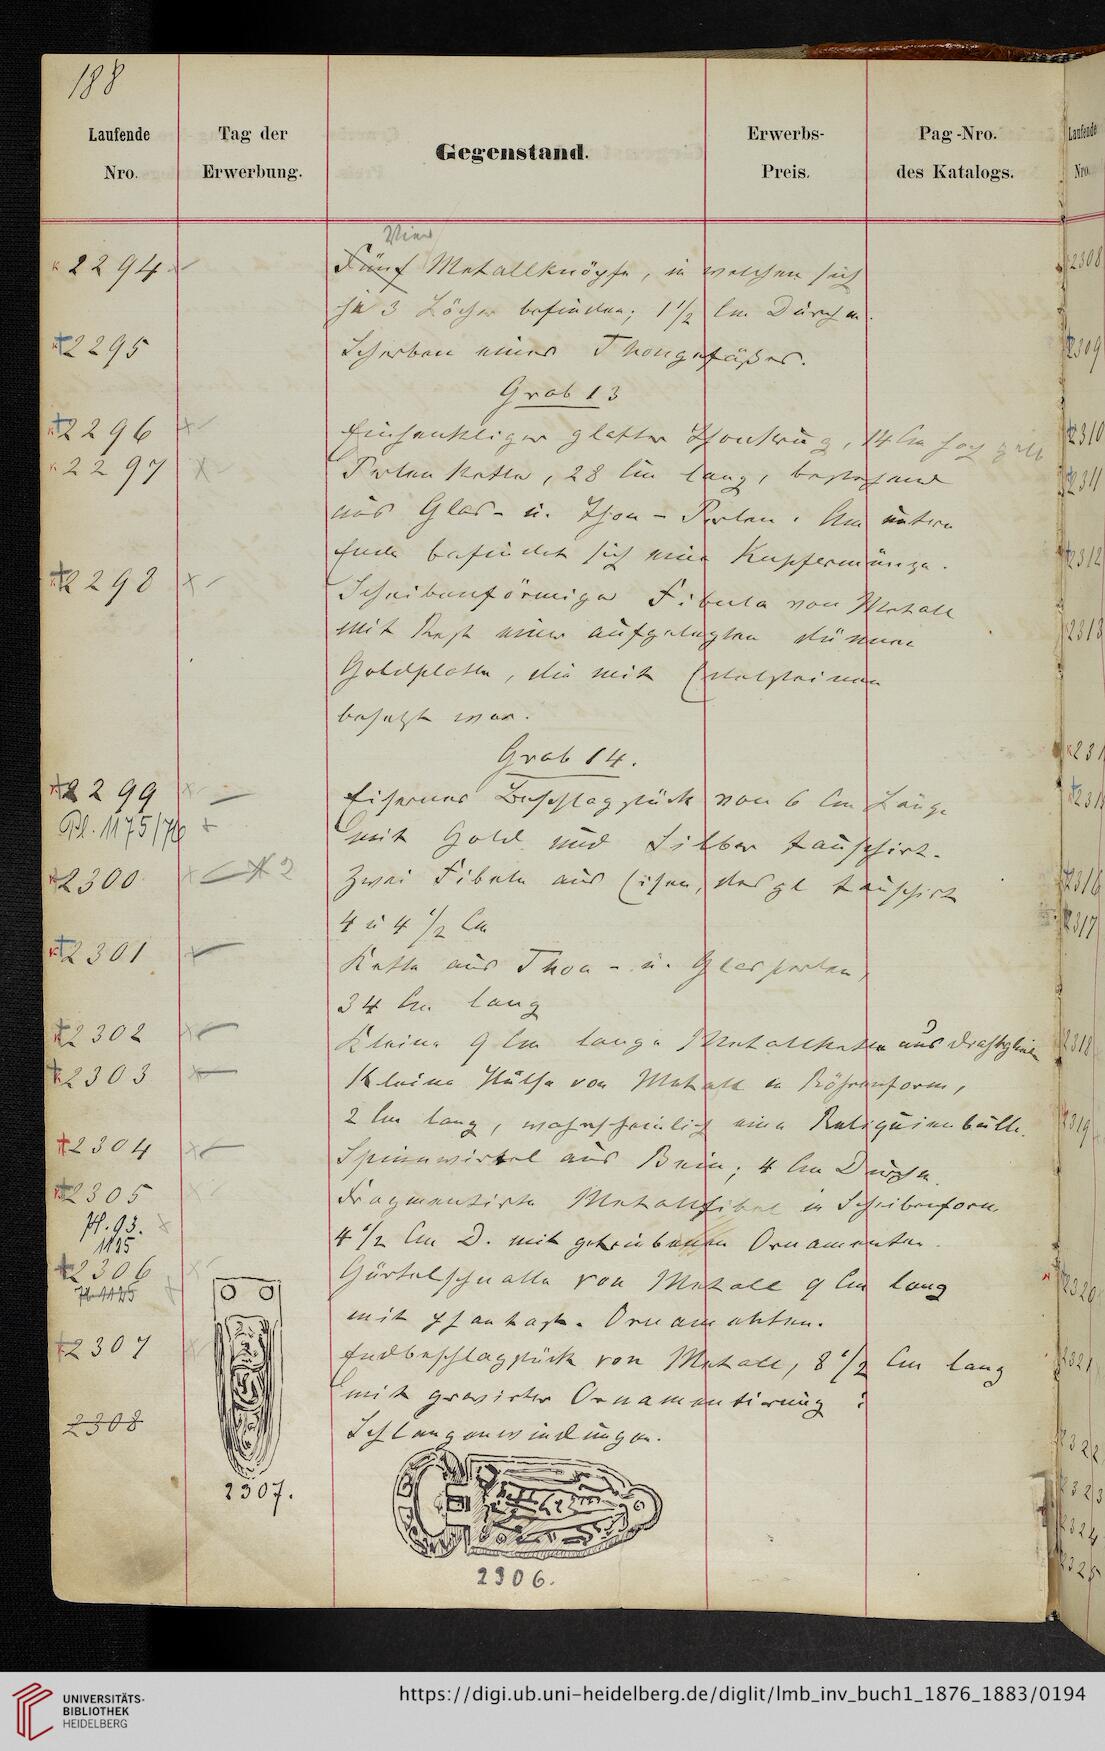 188
Laufende Nro.
Tag der Erwerbung.
Gegenstand.
Erwerbs-Preis.
Pag-Nro. des Katalogs.
Vier
2294 Fünf Metallknöpfe, in welchen sich
je 3 Löcher befinden; 1 1/2 Cm Durchm.
2295 Scherben eines Thongefäßes.
Grab 13
2296 Einhenkliger glatter Thonkrug, 14 Cm hoch gelb
2297 Perlenkette, 28 Cm lang, bestehend
aus Glas- u. Thon-Perlen. Am untern
Ende befindet sich eine Kupfermünze.
2298 Scheibenförmige Fibula von Metall
mit Rest einer aufgelegten dünnen
Goldplatte, die mit Edelsteinen
besetzt war.
Grab 14.
2299 Eisernes Beschlagstück von 6 Cm Länge
Pl. 1175/76 mit Gold und Silber tauschirt.
2300 Zwei Fibeln aus Eisen, desgl tauschirt
4 u 4 1/2 Cm
2301 Kette aus Thon- u. Glasperlen,
34 Cm lang
2302 Kleine 9 Cm lange Metallkette aus Draht
2303 Kleine Hülse von Metall in Röhrenform,
2 Cm lang, wahrscheinlich eine Reliquienbulle.
2304 Spinnwirtel aus Bein; 4 Cm Durchm.
2305 Fragmentirte Metallfibel in Scheibenform
Pl. 93. 1125
4 1/2 Cm D. mit getriebenen Ornamenten.
2306 Gürtelschnalle von Metall 9 Cm lang
Pl. 1125
mit phantast. Ornamenten.
2307 Endbeschlagstück von Metall, 8 1/2 Cm lang
mit gravirter Ornamentirung :
2308 Schlangenwindungen.
2307.
2306.
Laufende
Nro.
2308
2309
2310
2311
2312
2313
2316
2317
2318
2319
2320
2321
2322
2323
2324
2325
UNIVERSITÄTS-
BIBLIOTHEK
HEIDELBERG
https://digi.ub.uni-heidelberg.de/diglit/lmb_inv_buch1_1876_1883/0194